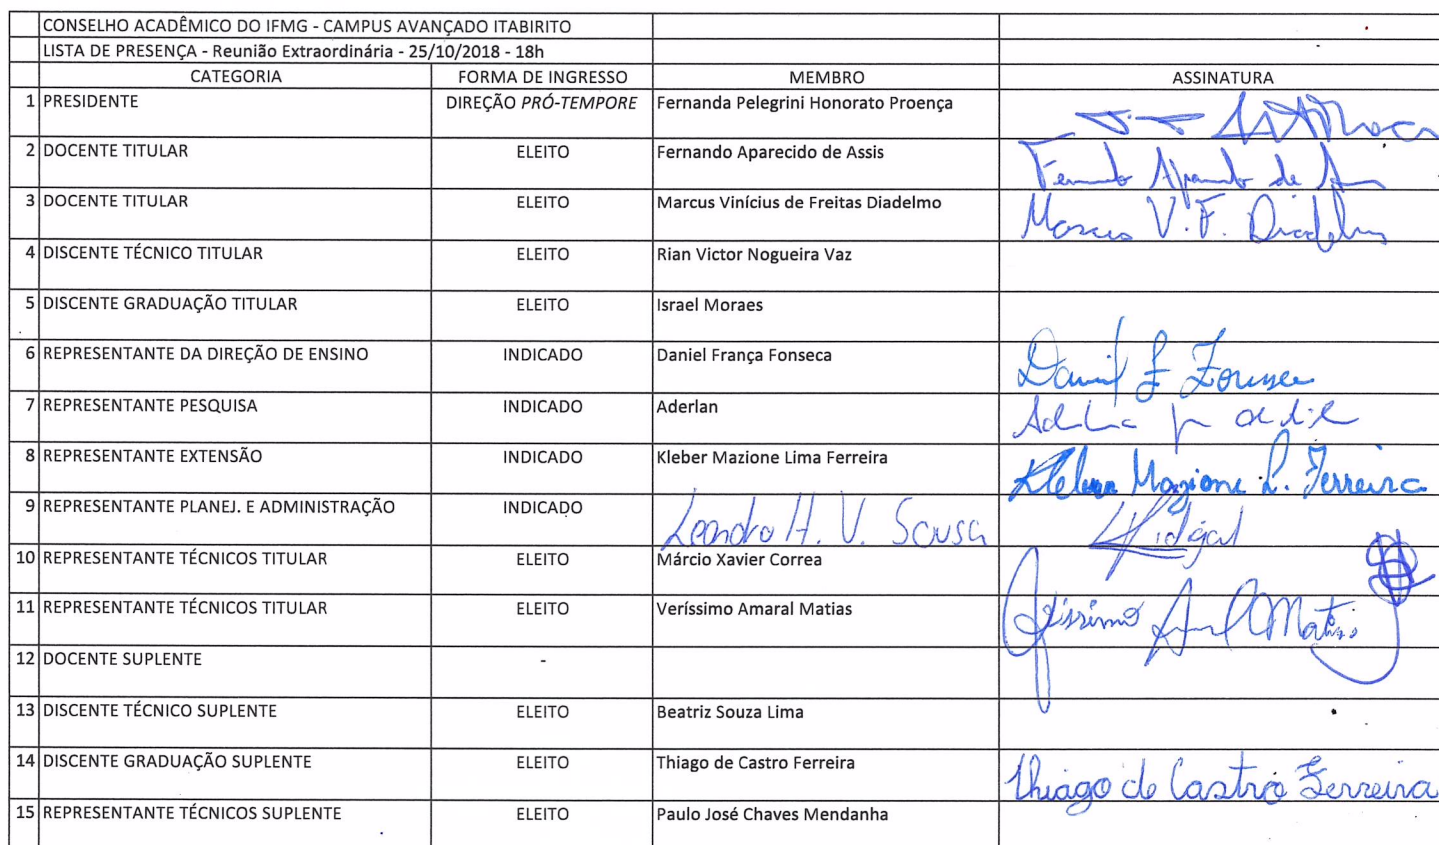 CONSELHO ACADÊMICO DO IFMG - CAMPUS AVANÇADO ITABIRITO
LISTA DE PRESENÇA - Reunião Extraordinária - 25/10/2018 - 18h
CATEGORIA FORMA DE INGRESSO MEMBRO ASSINATURA
1 PRESIDENTE DIREÇÃO PRÓ-TEMPORE Fernanda Pelegrini Honorato Proença
2 DOCENTE TITULAR ELEITO Fernando Aparecido de Assis Fernando Aparecido de Assis
3 DOCENTE TITULAR ELEITO Marcus Vinícius de Freitas Diadelmo Marcus V. F. Diadelmo
4 DISCENTE TÉCNICO TITULAR ELEITO Rian Victor Nogueira Vaz
5 DISCENTE GRADUAÇÃO TITULAR ELEITO Israel Moraes
6 REPRESENTANTE DA DIREÇÃO DE ENSINO INDICADO Daniel França Fonseca Daniel F Fonseca
7 REPRESENTANTE PESQUISA INDICADO Aderlan
8 REPRESENTANTE EXTENSÃO INDICADO Kleber Mazione Lima Ferreira Kleber Mazione L. Ferreira
9 REPRESENTANTE PLANEJ. E ADMINISTRAÇÃO INDICADO Leandro H. V. Sousa
10 REPRESENTANTE TÉCNICOS TITULAR ELEITO Márcio Xavier Correa
11 REPRESENTANTE TÉCNICOS TITULAR ELEITO Veríssimo Amaral Matias Veríssimo Amaral Matias
12 DOCENTE SUPLENTE -
13 DISCENTE TÉCNICO SUPLENTE ELEITO Beatriz Souza Lima
14 DISCENTE GRADUAÇÃO SUPLENTE ELEITO Thiago de Castro Ferreira Thiago de Castro Ferreira
15 REPRESENTANTE TÉCNICOS SUPLENTE ELEITO Paulo José Chaves Mendanha